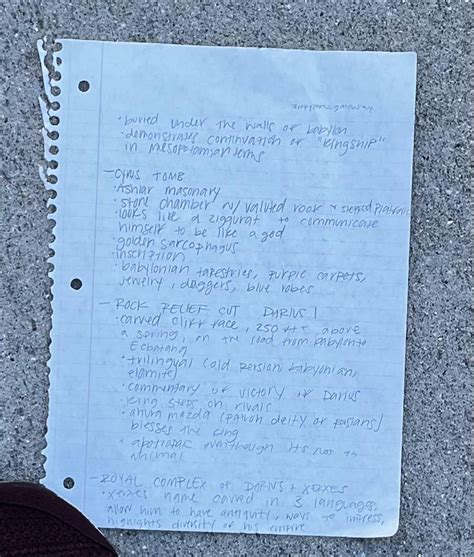 • buried under the walls of babylon
• demonstrates continuation of "kingship"
in mesopotamian terms
— CYRUS TOMB
• Ashlar masonary
• stone chamber w/ valuted roof + stepped platform
• looks like a ziggurat to communicate
himself to be like a god
• golden sarcophagus
• inscription
• babylonian tapestries, purple carpets,
jewelry, daggers, blue robes
— ROCK RELIEF CUT DARIUS I
• carved cliff face, 250 ft above
a spring, on the road from babylon to
Ecbatana
• trilingual (old persion, babylonian,
elamite)
• commentary of victory of Darius
• king steps on rivals
• ahura mazda (patron deity of persians)
blesses the king
• apotropaic eventhough its not an
animal
— ROYAL COMPLEX OF DARIUS + XERXES
• xerxes name carved in 3 languages,
allow him to have antiquity, ways to impress,
highlights diversity of his empire